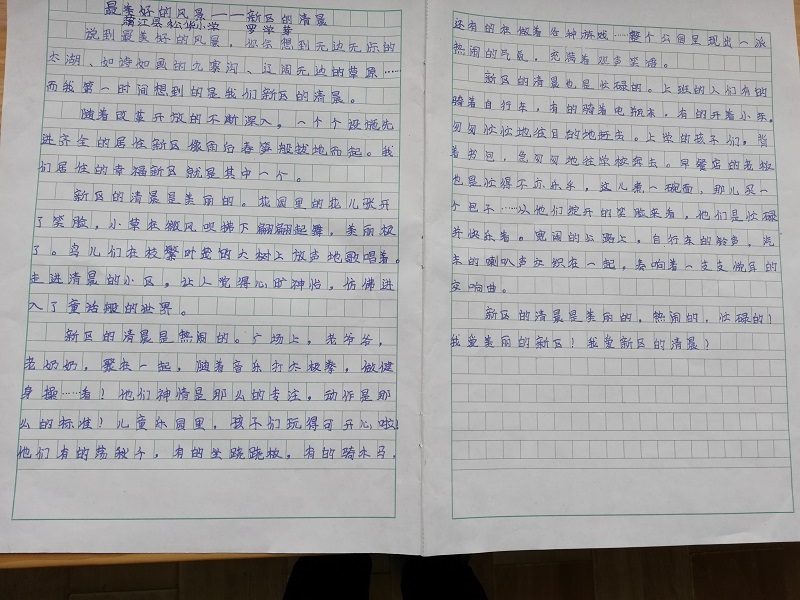 最美好的风景——新区的清晨
蒲江县松华小学 罗学芽
说到最美好的风景，你会想到无边无际的
大湖、如诗如画的九寨沟、辽阔无边的草原……
而我第一时间想到的是我们新区的清晨。
随着改革开放的不断深入，一个个设施先
进齐全的居住新区像雨后春笋般拔地而起。我
们居住的幸福新区就是其中一个。
新区的清晨是美丽的。花园里的花儿张开
了笑脸，小草在微风吹拂下翩翩起舞，美丽极
了。鸟儿们在枝繁叶茂的大树上放声地歌唱着。
走进清晨的小区，让人觉得心旷神怡，仿佛进
入了童话般的世界。
新区的清晨是热闹的。广场上，老爷爷，
老奶奶，聚在一起，随着音乐打太极拳，做健
身操……看！他们神情是那么的专注，动作是那
么的标准！儿童乐园里，孩子们玩得可开心啦！
他们有的荡秋千，有的坐跷跷板，有的骑木马，
还有的在做着各种游戏……整个公园呈现出一派
热闹的气氛，充满着欢声笑语。
新区的清晨也是忙碌的。上班的人们有的
骑着自行车，有的骑着电瓶车，有的开着小车，
匆匆忙忙地往目的地赶去。上学的孩子们，背
着书包，急匆匆地往学校奔去。早餐店的老板
也是忙得不亦乐乎，这儿煮一碗面，那儿买一
个包子……从他们绽开的笑脸来看，他们是忙碌
并快乐着。宽阔的公路上，自行车的铃声，汽
车的喇叭声交织在一起，奏响着一支支悦耳的
交响曲。
新区的清晨是美丽的，热闹的，忙碌的！
我爱美丽的新区！我爱新区的清晨！